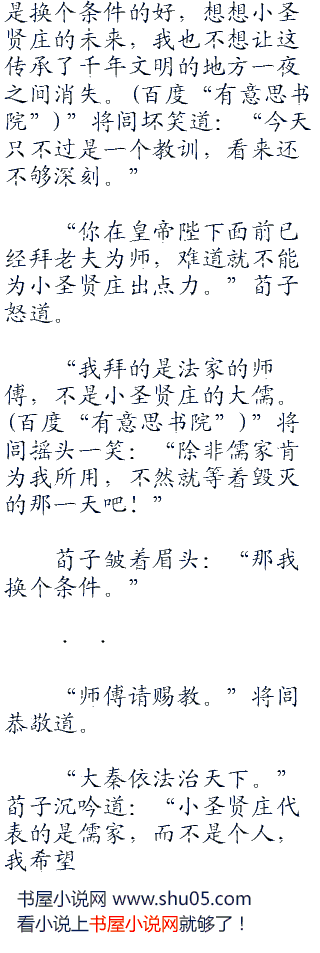 是换个条件的好，想想小圣
贤庄的未来，我也不想让这
传承了千年文明的地方一夜
之间消失。(百度“有意思书
院”)”将闾坏笑道：“今天
只不过是一个教训，看来还
不够深刻。”
“你在皇帝陛下面前已
经拜老夫为师，难道就不能
为小圣贤庄出点力。”荀子
怒道。
“我拜的是法家的师
傅，不是小圣贤庄的大儒。
(百度“有意思书院”)”将
闾摇头一笑：“除非儒家肯
为我所用，不然就等着毁灭
的那一天吧！”
荀子皱着眉头：“那我
换个条件。”
．．
“师傅请赐教。”将闾
恭敬道。
“大秦依法治天下。”
荀子沉吟道：“小圣贤庄代
表的是儒家，而不是个人，
我希望
书屋小说网 www.shu05.com
看小说上书屋小说网就够了！